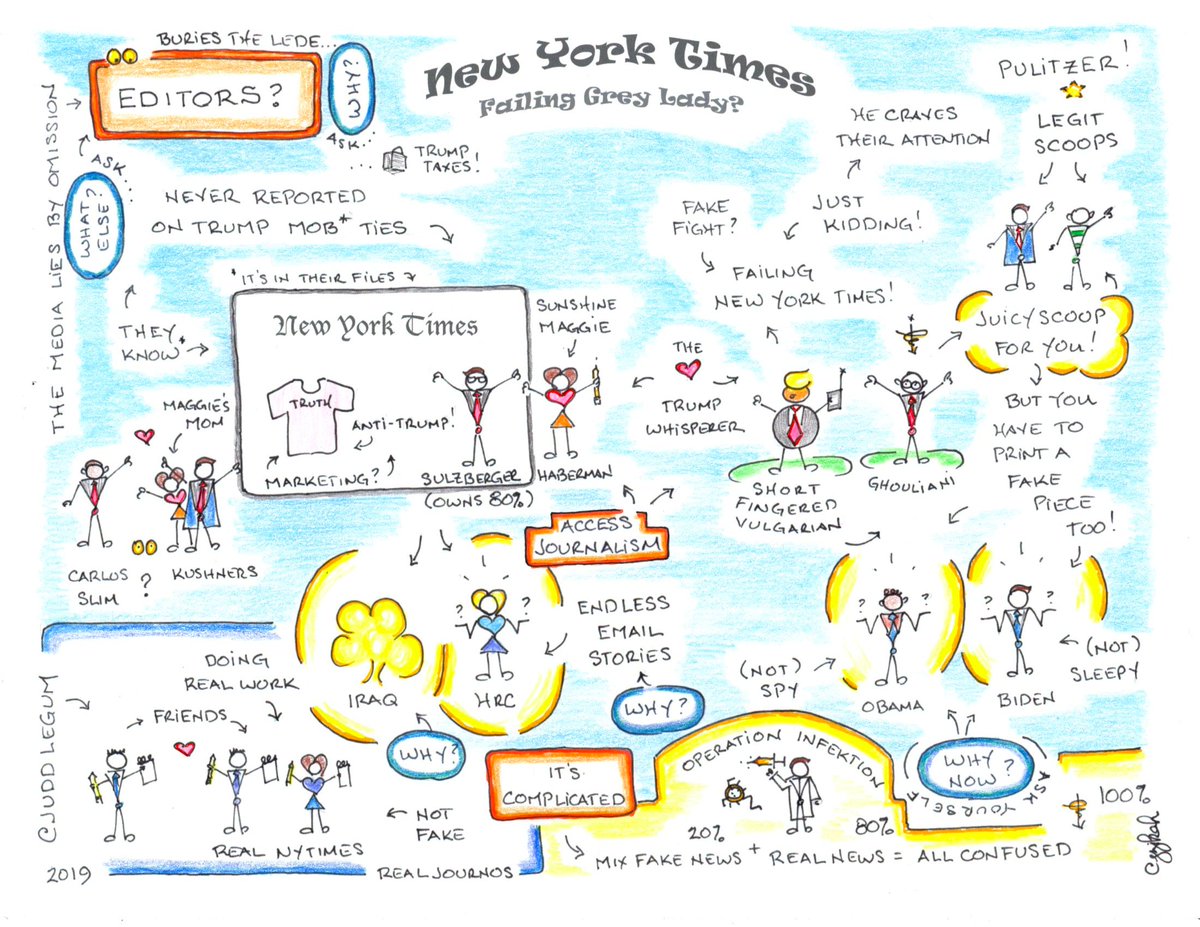 BURIES THE LEDE...
EDITORS?
WHY?
ASK...
TRUMP
TAXES!
New York Times
Failing Grey Lady?
PULITZER!
LEGIT
SCOOPS
HE CRAVES
THEIR ATTENTION
JUST
KIDDING!
FAKE
FIGHT?
FAILING
NEW YORK TIMES!
THE MEDIA LIES BY OMISSION
ASK...
WHAT
ELSE?
NEVER REPORTED
ON TRUMP MOB* TIES
*IT'S IN THEIR FILES
THEY
KNOW*
New York Times
TRUTH
ANTI-TRUMP!
MARKETING?
SULZBERGER
(OWNS 80%)
SUNSHINE
MAGGIE
HABERMAN
THE
TRUMP
WHISPERER
SHORT
FINGERED
VULGARIAN
GHOULIANI
JUICY SCOOP
FOR YOU!
BUT YOU
HAVE TO
PRINT A
FAKE
PIECE
TOO!
MAGGIE'S
MOM
CARLOS
SLIM
?
KUSHNERS
ACCESS
JOURNALISM
IRAQ
? ?
HRC
ENDLESS
EMAIL
STORIES
WHY?
WHY?
(NOT)
SPY
? ?
OBAMA
? ?
BIDEN
(NOT)
SLEEPY
WHY
NOW?
ASK YOURSELF
CJUDDLEGUM
DOING
REAL WORK
FRIENDS
REAL NYTIMES
NOT
FAKE
REAL JOURNOS
2019
IT'S
COMPLICATED
OPERATION INFEKTION
20%
80%
100%
MIX FAKE NEWS + REAL NEWS = ALL CONFUSED